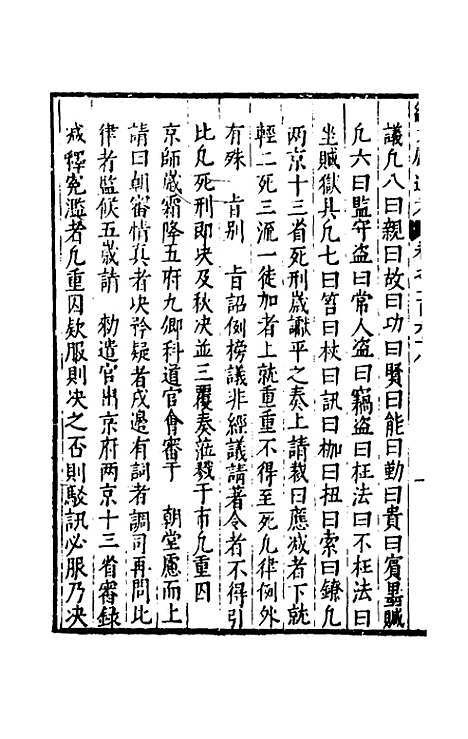 議凡八曰親曰故曰功曰賢曰能曰勤曰貴曰賓墨贓
凡六曰監守盜曰常人盜曰竊盜曰枉法曰不枉法曰
坐贓獄具凡七曰笞曰杖曰訊曰枷曰扭曰索曰鐐凡
两京十三省死刑歲讞平之奏上請裁曰應减者下就
輕二死三流一徒加者上就重重不得至死凡律例外
有殊 旨别 旨詔例榜議非經議請著令者不得引
比凡死刑即决及秋决並三覆奏涖戮于市凡重囚
京師歲霜降五府九卿科道官會審于 朝堂慮而上
請曰朝審情真者决矜疑者戍邊有詞者調司再問比
律者監候五歲請 勅遣官出京府两京十三省審録
减釋冤濫者凡重囚欵服則决之否則駁訊必服乃决